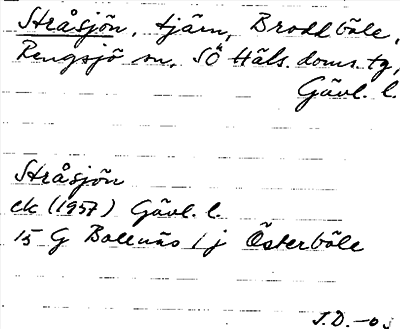 Stråsjön, tjärn, Broddböle,
Rengsjö sn, SÖ Häls. doms. tg,
Gävl. l.
Stråsjön
ek (1957) Gävl. l.
15 G Bollnäs 1 j Österböle
J.D. -03